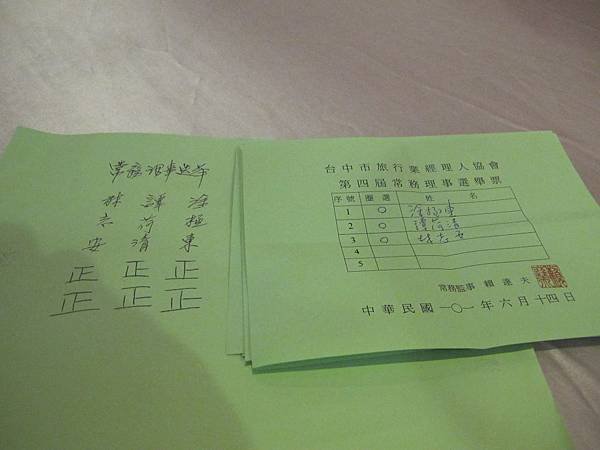 常務理事選舉
林 譚 涂
志 荷 極
安 清 東
正 正 正
正 正 正
台中市旅行業經理人協會
第四屆常務理事選舉票
序號 圈選 姓 名
1 ○ 涂極東
2 ○ 譚荷清
3 ○ 林志安
4
5
常務監事 賴連夫
中華民國一○一年六月十四日